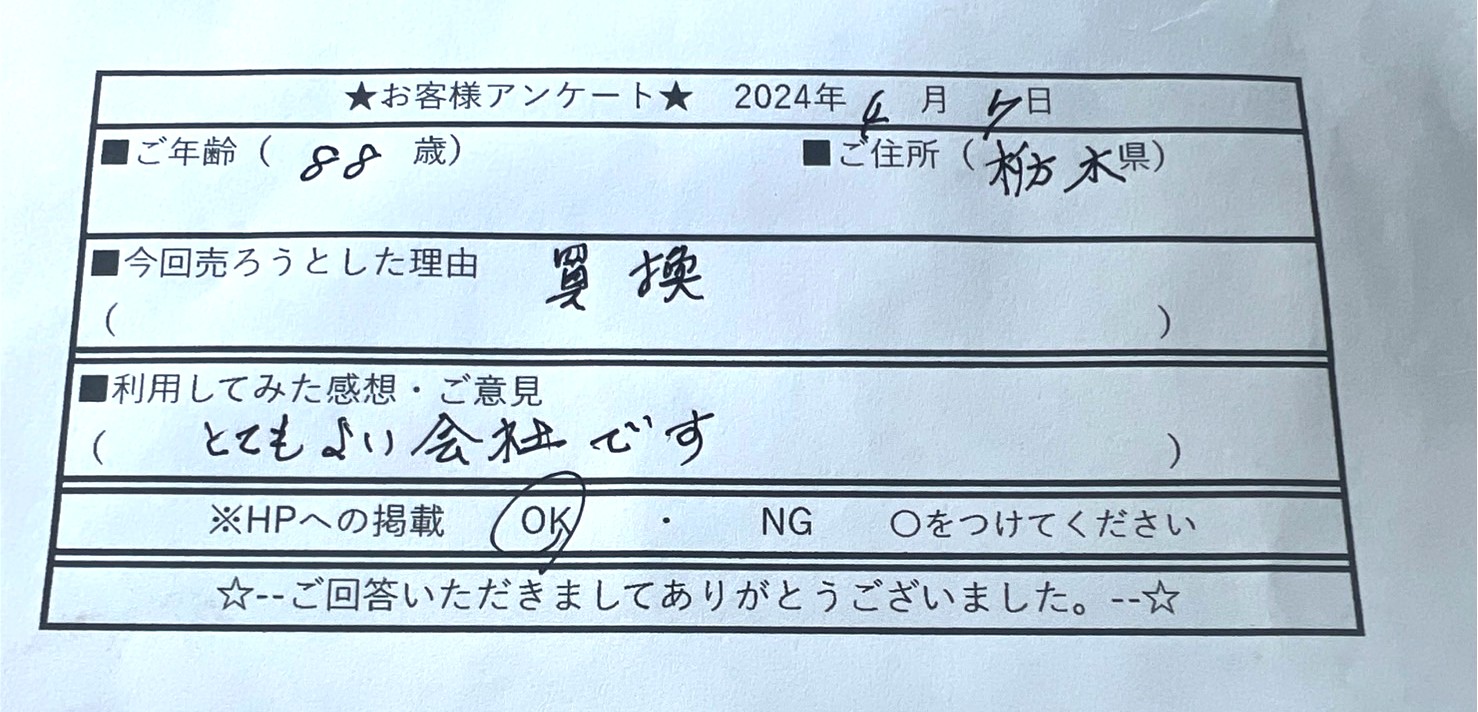 ★お客様アンケート★ 2024年 4月 7日
■ご年齢( 88 歳) ■ご住所(栃木県)
■今回売ろうとした理由 買換
( )
■利用してみた感想・ご意見
( とてもよい会社です )
※HPへの掲載 OK ・ NG ○をつけてください
☆--ご回答いただきましてありがとうございました。--☆